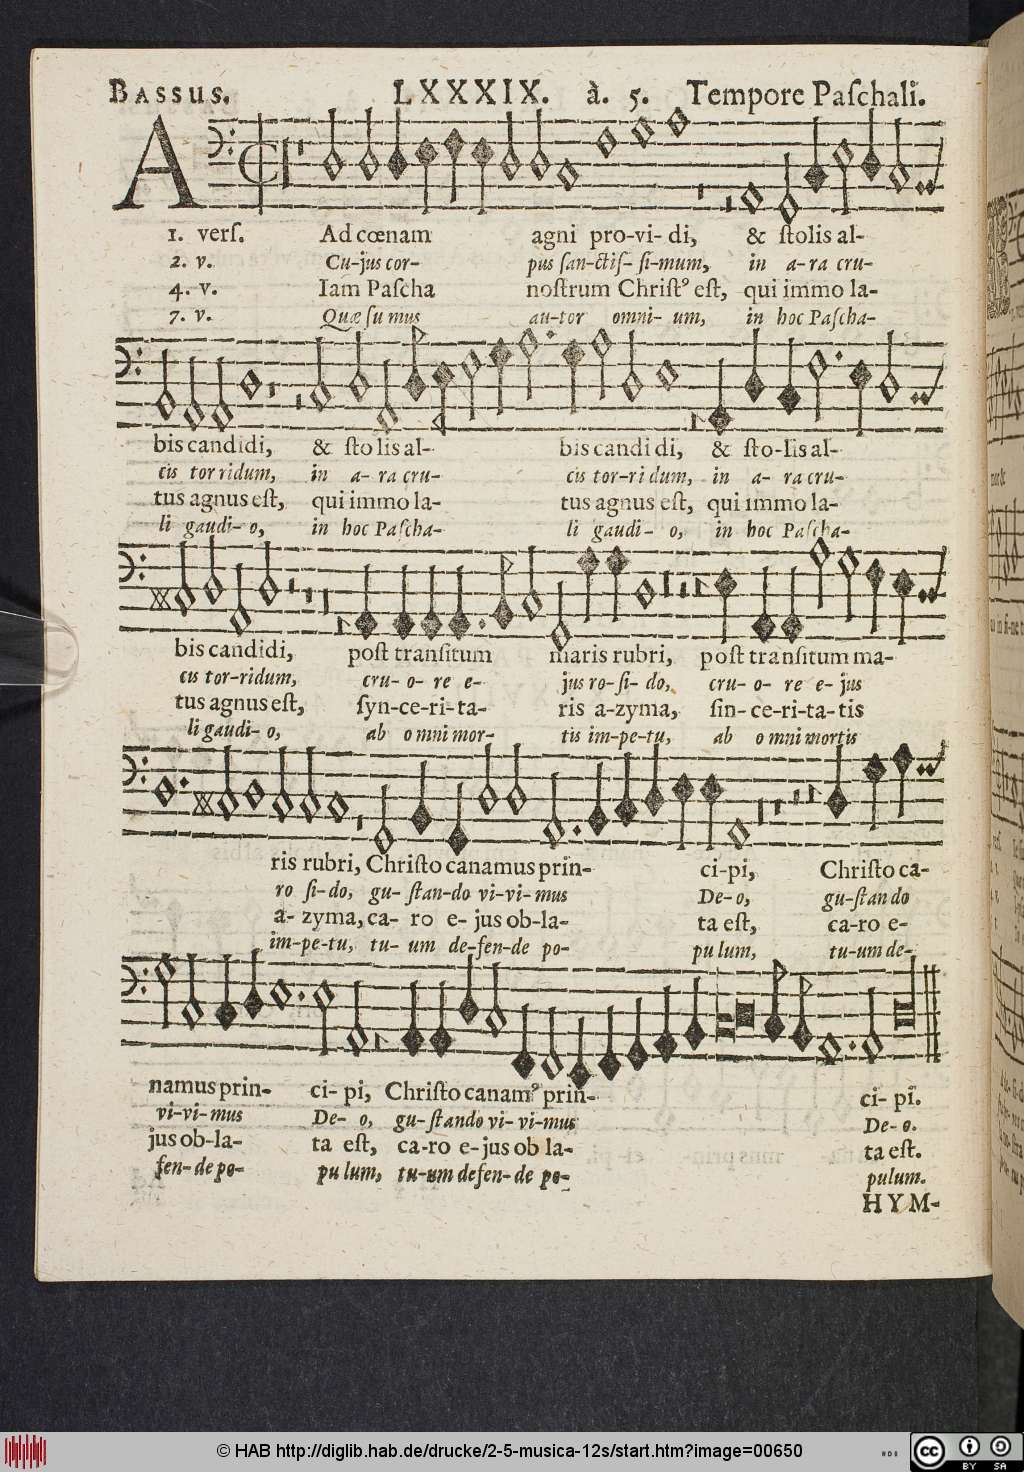 BASSUS. LXXXIX. à. 5. Tempore Paſchali.
A
1. verſ. Ad cœnam agni pro-vi- di, & ſtolis al-
2. v. Cu-jus cor- pus ſan-ctiſ- ſi-mum, in a-ra cru-
4. v. Iam Paſcha noſtrum Chriſtꝰ eſt, qui immo la-
7. v. Quæ ſu mus au-tor omni- um, in hoc Paſcha-
bis candidi, & ſto lis al- bis candi di, & ſto-lis al-
cis tor ridum, in a- ra cru- cis tor-ri dum, in a- ra cru-
tus agnus eſt, qui immo la- tus agnus eſt, qui immo la-
li gaudi- o, in hoc Paſcha- li gaudi- o, in hoc Paſcha-
bis candidi, poſt tranſitum maris rubri, poſt tranſitum ma-
cis tor-ridum, cru- o- re e- jus ro-ſi- do, cru- o- re e- jus
tus agnus eſt, ſyn-ce-ri-ta- ris a-zyma, ſin-ce-ri-ta-tis
li gaudi- o, ab o mni mor- tis im-pe-tu, ab o mni mortis
ris rubri, Chriſto canamus prin- ci-pi, Chriſto ca-
ro ſi-do, gu- ſtan-do vi-vi-mus De- o, gu-ſtan do
a- zyma, ca- ro e- jus ob-la- ta eſt, ca-ro e-
im-pe-tu, tu- um de-fen-de po- pu lum, tu-um de-
namus prin- ci- pi, Chriſto canamꝰ prin- ci- pi.
vi-vi-mus De- o, gu-ſtando vi-vi-mus De- o.
jus ob-la- ta eſt, ca-ro e-jus ob la- ta eſt.
fen-de po- pu lum, tu-um defen-de po- pulum.
HYM-
© HAB http://diglib.hab.de/drucke/2-5-musica-12s/start.htm?image=00650
HAB
cc BY SA